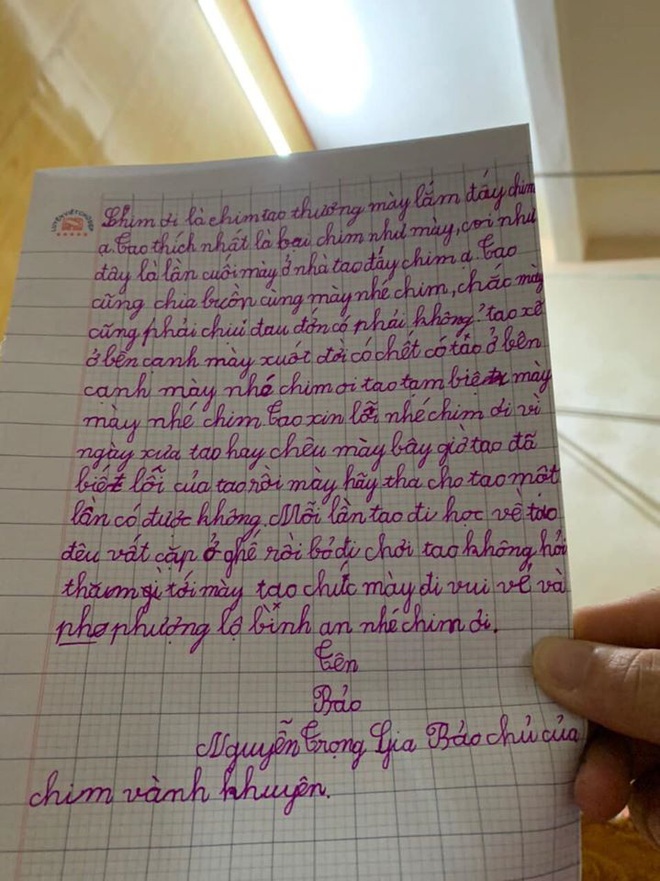 LUYỆN VIẾT CHỮ ĐẸP
Chim ơi là chim tao thương mày lắm đấy chim
ạ. Tao thích nhất là bại chim như mày, coi như
đây là lần cuối mày ở nhà tao đấy chim ạ. Tao
cũng chia buồn cùng mày nhé chim, chắc mày
cũng phải chiụi đau đớn có phải không? tao xẽ
ở bên cạnh mày xuốt đời có chết có tao ở bên
cạnh mày nhé chim ơi tao tạm biệt mày
mày nhé chim. Tao xin lỗi nhé chim ơi vì
ngày xưa tao hay chêu mày bây giờ tao đã
biết lỗi của tao rồi mày hãy tha cho tao một
lần có được không. Mỗi lần tao đi học về tao
đều vất cặp ở ghế rồi bỏ đi chơi tao không hỏi
thăm gì tới mày tao chúc mày đi vui vẻ và
phơ phượng lộ bình an nhé chim ơi.
Tên
Bảo
Nguyễn Trọng Gia Bảo chủ của
chim vành khuyên.